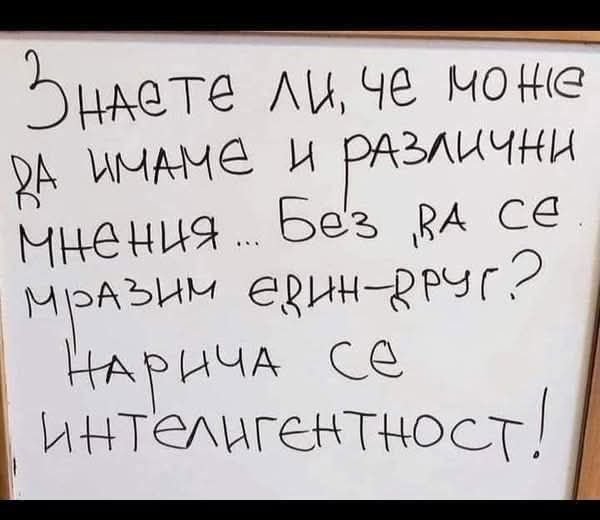 Знаете ли, че може
да имаме и различни
мнения... Без да се
мразим един-друг?
Нарича се
интелигентност!